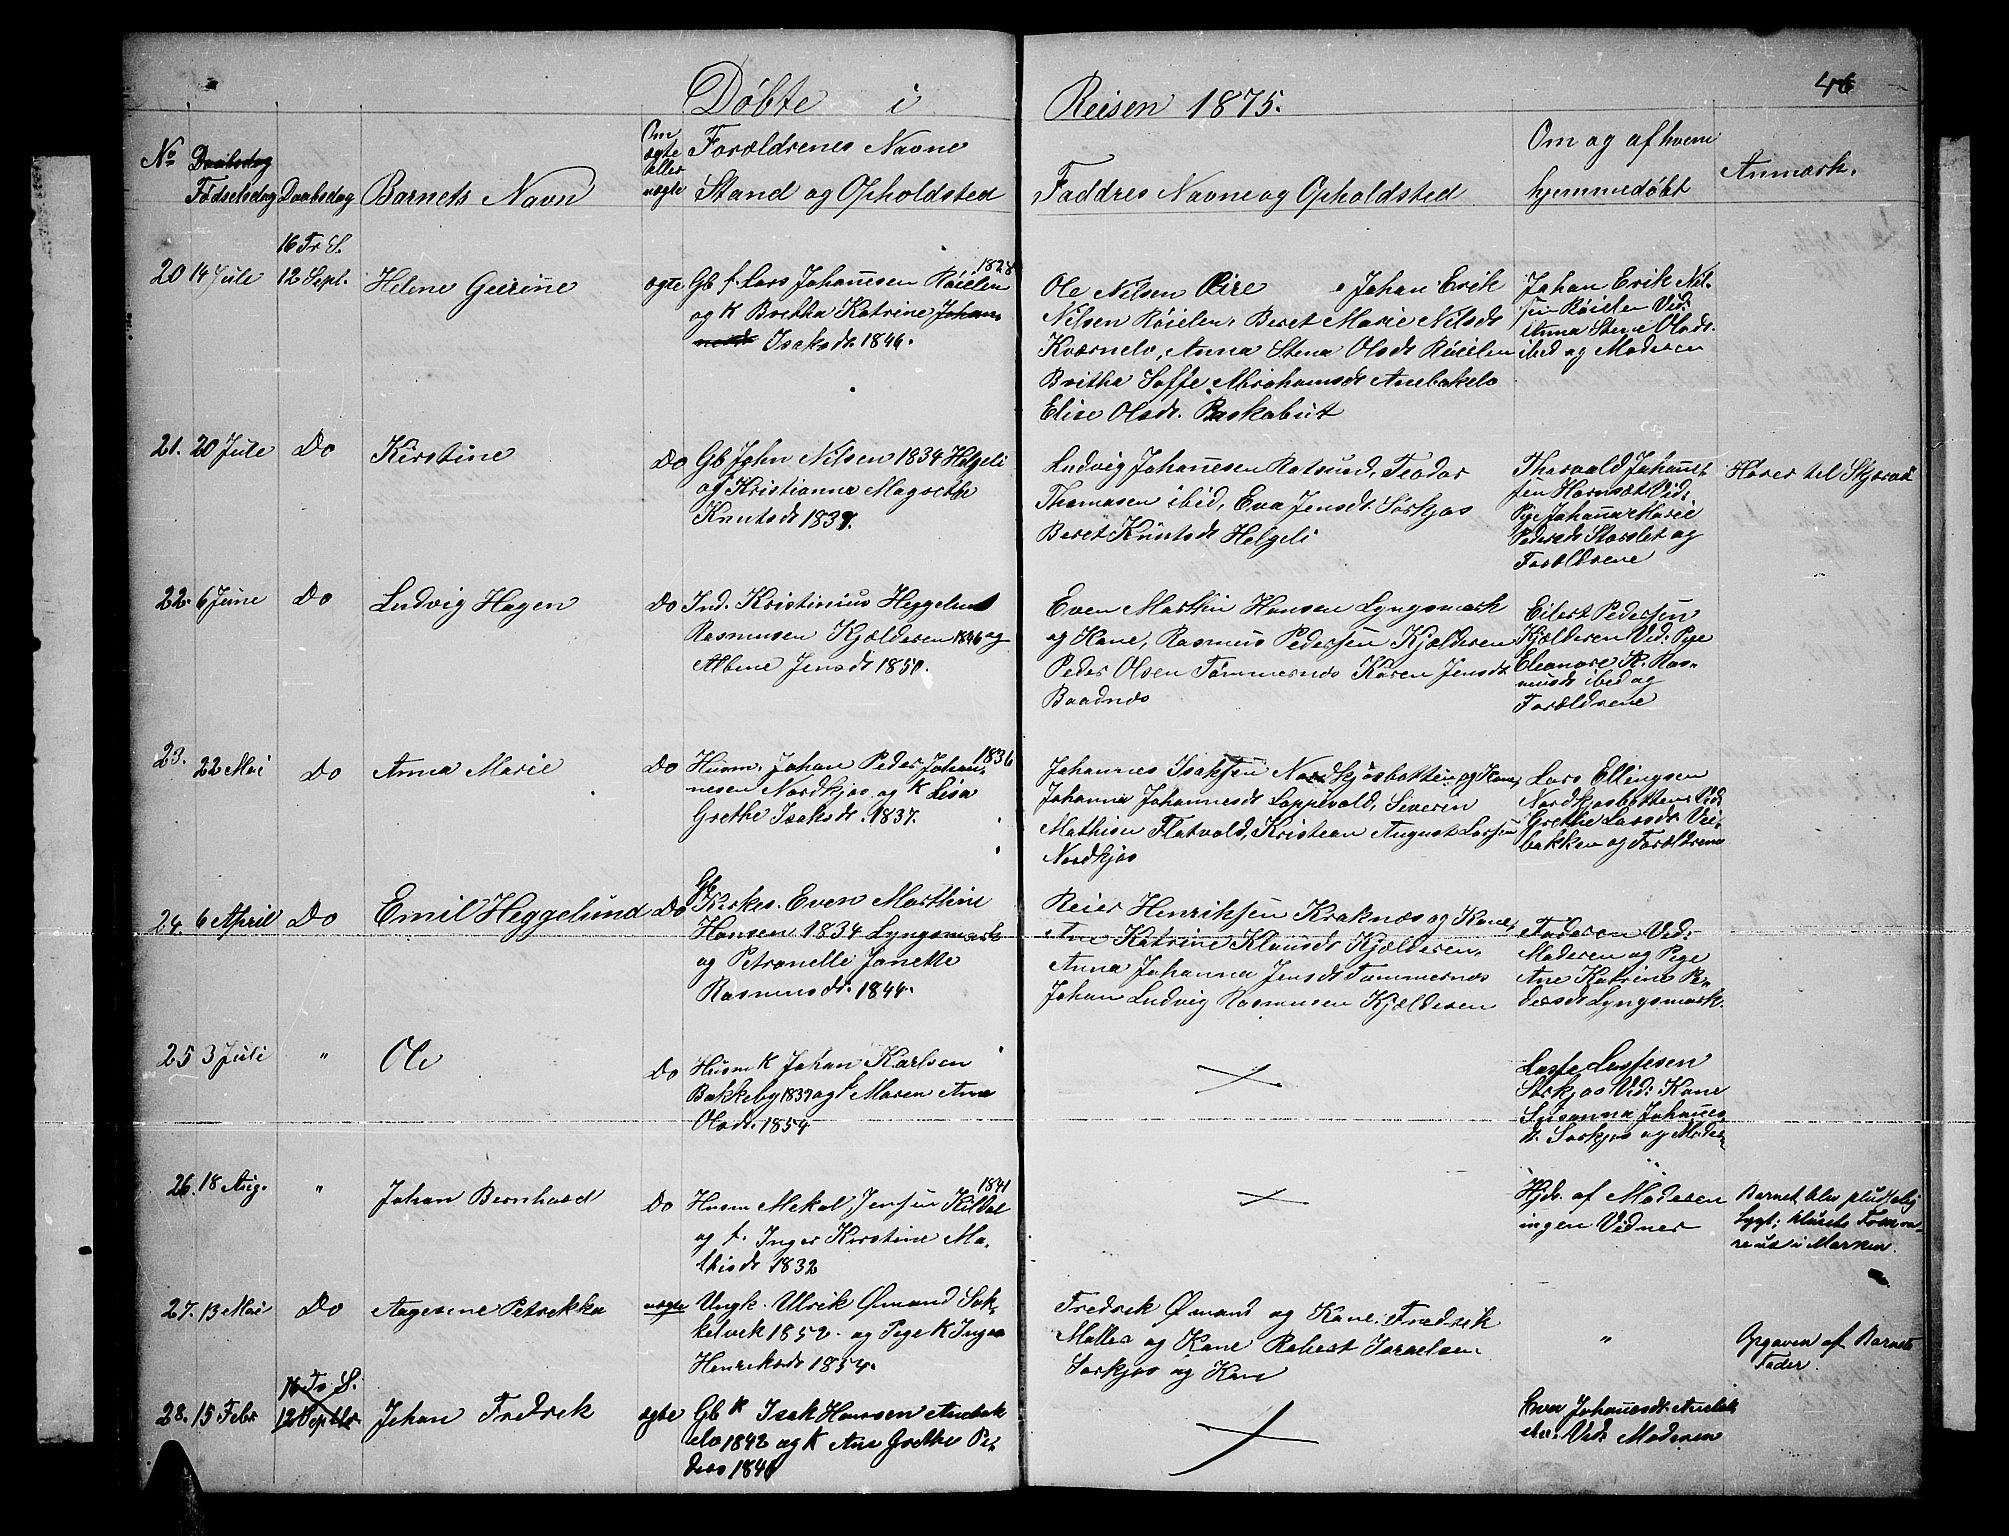 46
Døbte i Reisen 1875.
No Daabsdag Fødselsdag Daabsdag Barnets Navn
Om ægte eller uægte
Forældrenes Navne
Stand og Opholdsted
Faddres Navne og Opholdsted
Om og af hvem
hjemmedøbt
Anmærk.
20 14 Juli
16 Tr S.
12 Sept.
Helene Gurine
ægte
Gb f. Lars Johannesen Røielen 1828
og K Bretha Katrine Johan-
nesdt Isaksdt 1846.
Ole Nilsen Eire Johan Erik
Nilsen Røielen, Beret Marie Nilsdt
Kværnelv, Anna Stena Olsdt Røielen
Britha Soffe Abrahamsdt Anebakelv
Elise Olsdt. Paskabut
Johan Erik Nil-
sen Røielen Vid:
Anna Stene Olsdt.
ibid og Moderen
21. 20 Jule Do Kirstine
Do
Gb John Nilsen 1834 Helgeli
og Kristianna Magrethe
Knutsdt 1839.
Ludvig Johannesen Rotsund, Teodor
Thomasen ibid, Eva Jensdt. Sørkjos
Beret Knutsdt Helgeli
Thorvald Johannes
sen Hamnæt Vid:
Pige Johanna Marie
Pedersdt Storslet og
Forældrene
Hører til Skjervø
22. 6 June Do Ludvig Hagen
Do
Ind. Kristinius Heggelund
Rasmusen Kjælderen 1846 og
Albine Jensdt 1850.
Even Marthin Hansen Lyngsmark
og Kone, Rasmus Pedersen Kjælderen
Peder Olsen Tømmernes Karen Jensdt
Baadnes
Eilert Pedersen
Kjælderen Vid: Pige
Eleonore K. Ras-
musdt ibid og
Forældrene
23. 22 Mai Do Anna Marie
Do
Husm. Johan Peder Johan- 1836
nesen Nordkjos og K Lisa
Grethe Isaksdt. 1837.
Johannes Isaksen Nordkjosbotten og Kone,
Johanna Johannesdt Loppevold, Severin
Mathisen Flatvold, Kristian August Larsen
Nordkjos
Lars Ellingsen
Nordkjosbotten Vid:
Grethe Larsdt. Vei-
bakken og Forældrene
24. 6 April Do Emil Heggelund
Do
Gb
Kirkes. Even Marthin
Hansen 1834 Lyngsmark
og Petronelle Janette
Rasmusdt. 1844.
Reier Henriksen Kraknæs og Kone,
Ane Katrine Klausdt Kjælderen.
Anna Johanna Jensdt Tømmernes
Johan Ludvig Rasmusen Kjælderen
Faderen Vid:
Moderen og Pige
Ane Katrine Pe-
dersdt Lyngsmark.
25 3 Juli " Ole
Do
Husm K Johan Karlsen
Bakkeby 1837 og f Maren Ane
Olsdt. 1854
Lasse Lassesen
Sørkjos Vid: Kone
Susanna Johannes-
dt. Sørkjos og Moderen
26. 18 Aug. " Johan Bernhard
Do
Husm Mekal Jensen Kildal 1841
og f. Inger Kirstine Ma-
thisdt 1832
Hjdt. af Moderen
ingen Vidner
Barnet blev pludselig
sygt; Mueste
reist i Marken.
27. 13 Mai Do Aagesine Petrekka
uægte
Ungk. Ulrik Ømand Sok-
kelvik 1852. og Pige K Inger
Henriksdt 1854.
Fredrik Ømand og Kone, Fredrik
Møller og Kone Robert Israelsen
Sørkjos og Kone
"
Opgaven af Barnets
Fader.
28. 15 Febr
16 Tr S.
12 Septbr.
Johan Fredrik
ægte
Gb K Isak Hansen Anebak
elv 1842 og K Ane Grethe Pe-
dersdt 1846
Ewa Johannesdt. Anebak
elv. Vid: Moderen